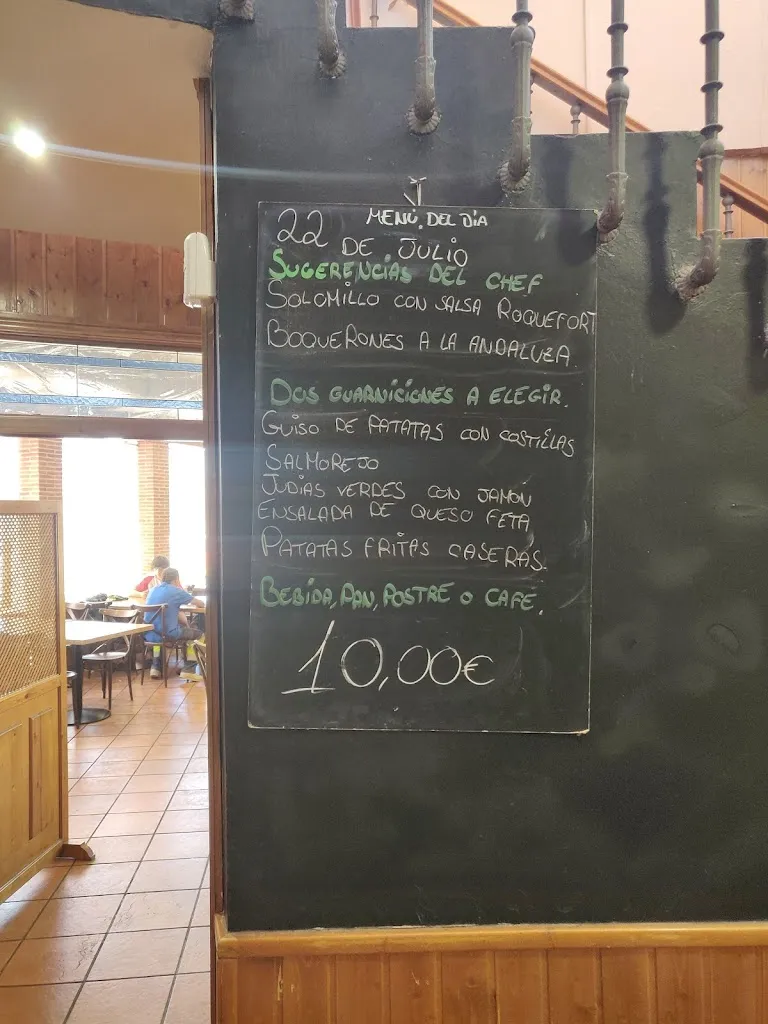 MENÚ DEL DÍA
22 DE JULIO
SUGERENCIAS DEL CHEF
SOLOMILLO CON SALSA ROQUEFORT
BOQUERONES A LA ANDALUZA
DOS GUARNICIONES A ELEGIR.
GUISO DE PATATAS CON COSTILLAS
SALMOREJO
JUDIAS VERDES CON JAMON
ENSALADA DE QUESO FETA
PATATAS FRITAS CASERAS.
BEBIDA, PAN, POSTRE O CAFÉ.
10,00€